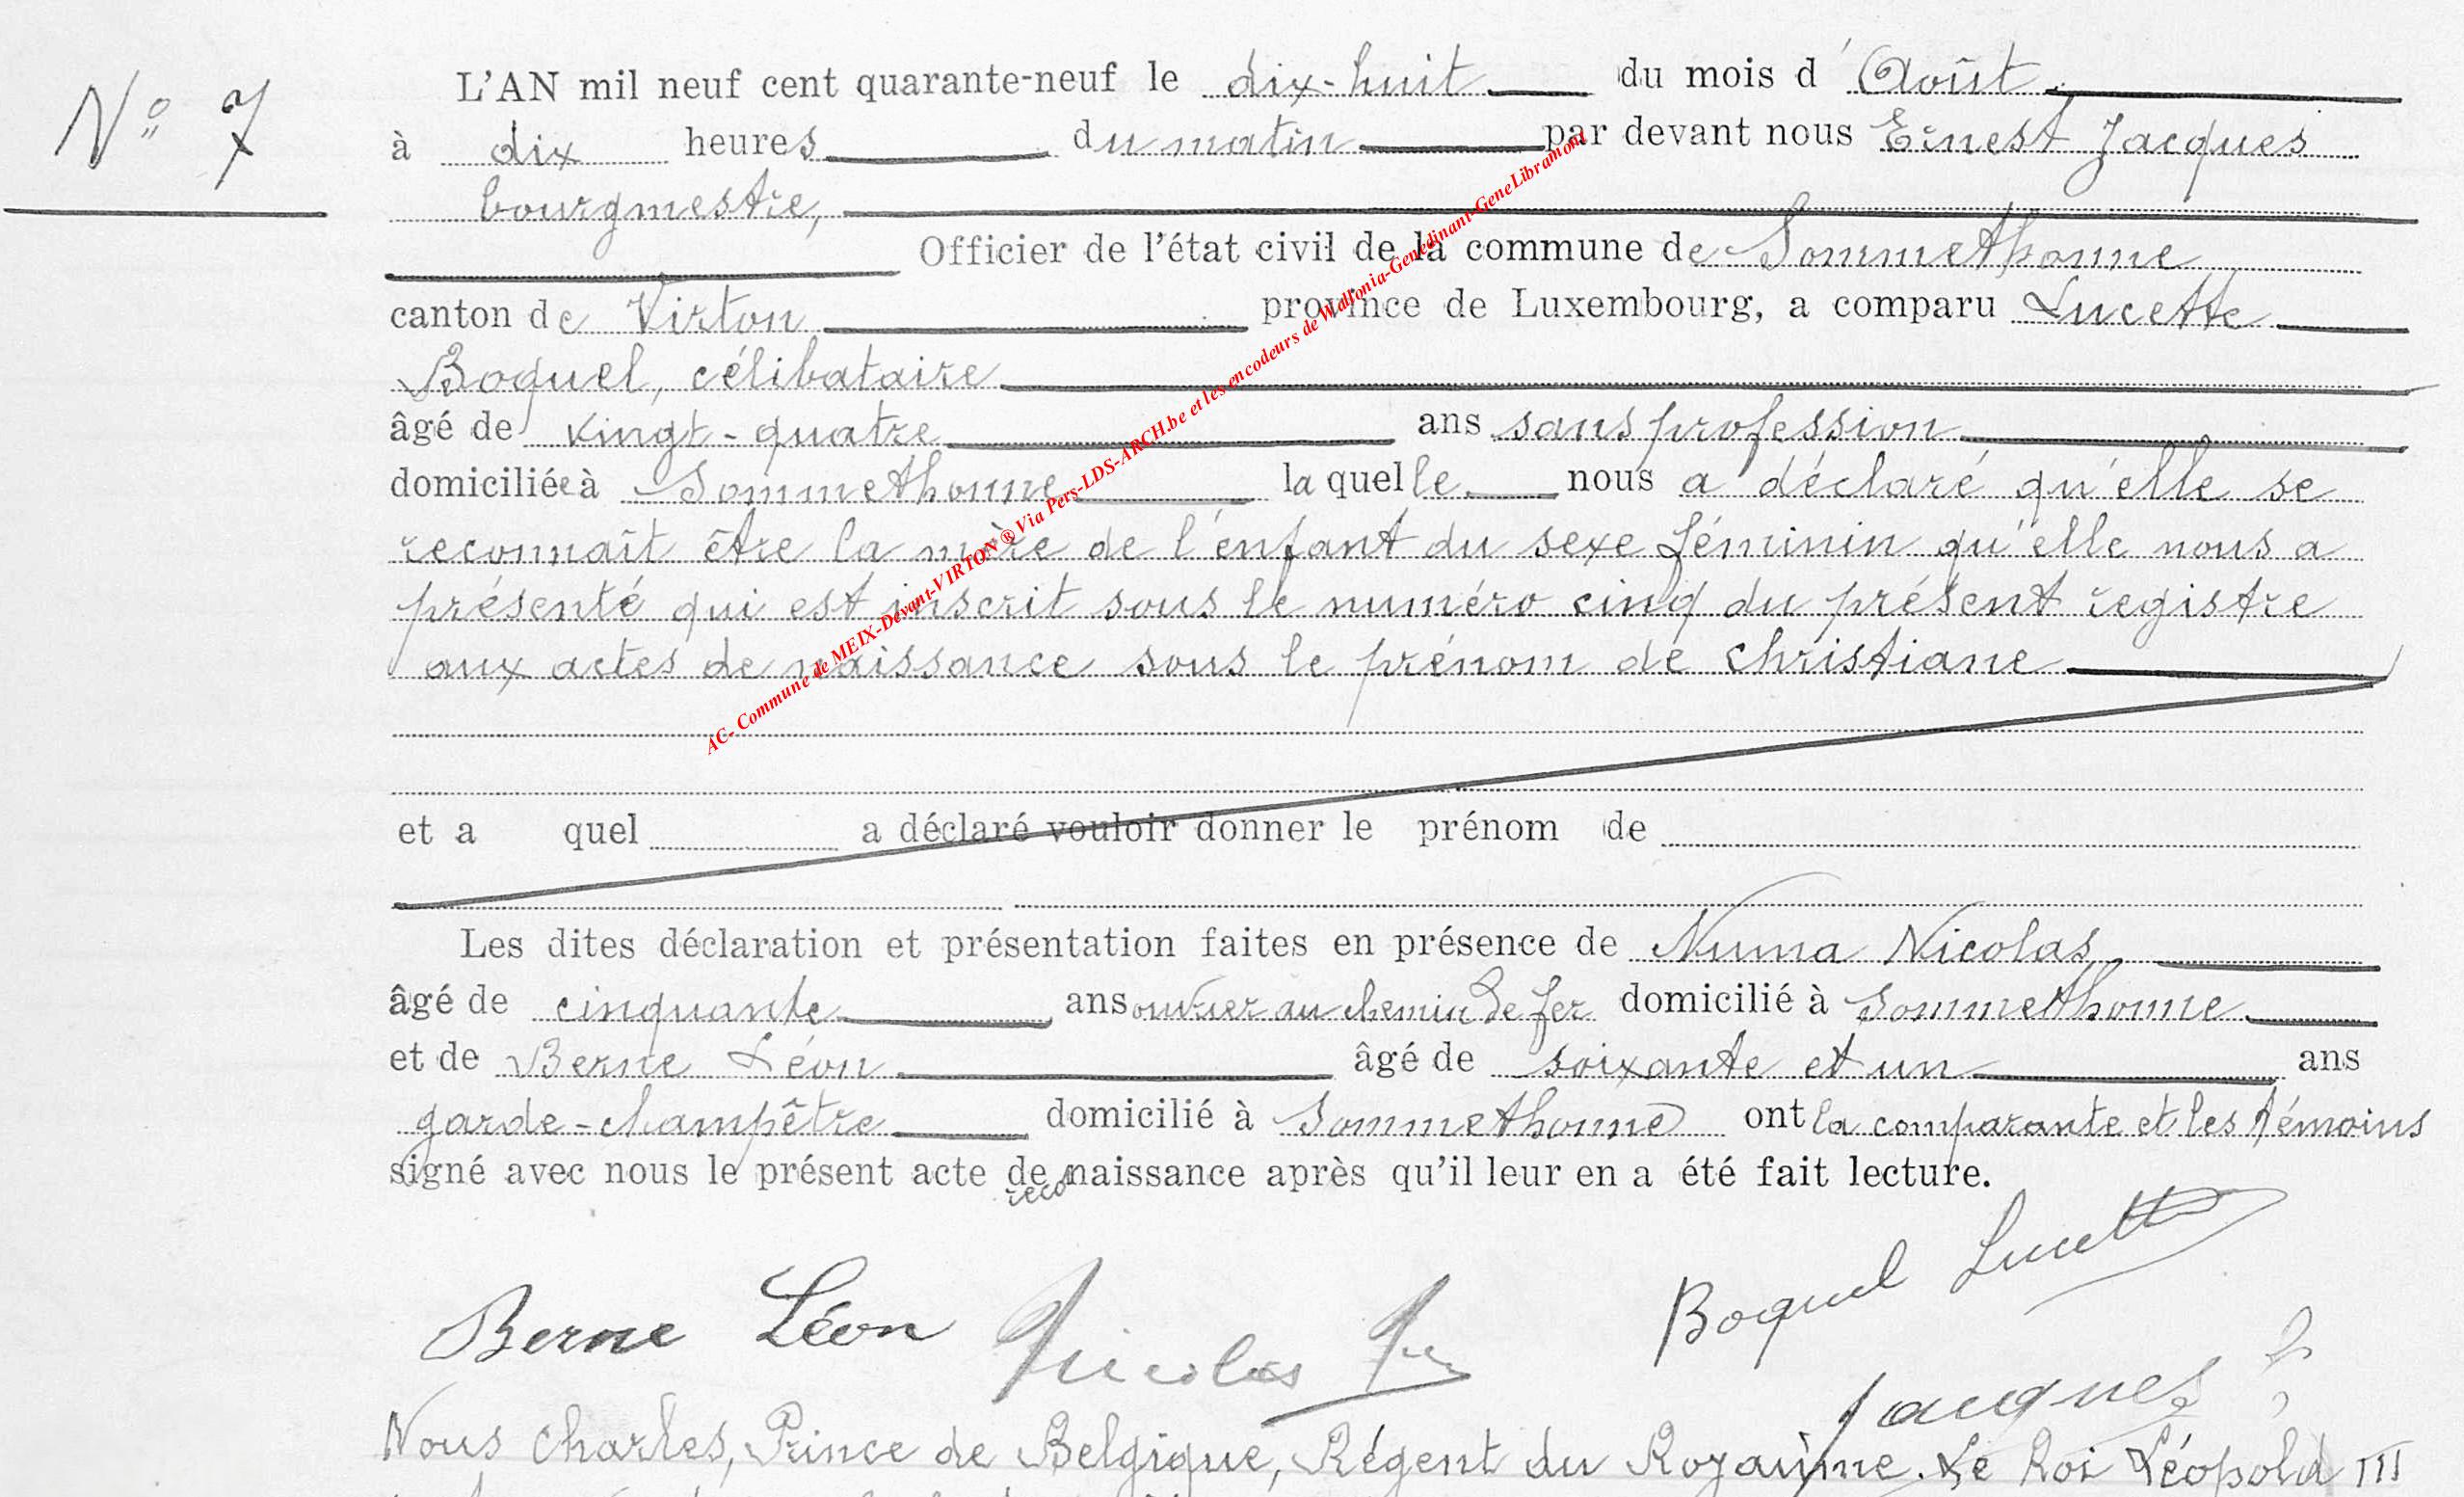 N° 7
L'AN mil neuf cent quarante-neuf le dix-huit du mois d' Août
à dix heures du matin par devant nous Ernest Jacques
bourgmestre,
Officier de l'état civil de la commune de Sommethonne
canton de Virton province de Luxembourg, a comparu Lucette
Boquel, célibataire
âgé de vingt-quatre ans sans profession
domiciliée à Sommethonne laquelle nous a déclaré qu'elle se
reconnaît être la mère de l'enfant du sexe féminin qu'elle nous a
présenté qui est inscrit sous le numéro cinq du présent registre
aux actes de naissance sous le prénom de Christiane
et a quel a déclaré vouloir donner le prénom de
Les dites déclaration et présentation faites en présence de Numa Nicolas
âgé de cinquante ans ouvrier au chemin de fer domicilié à Sommethonne
et de Berne Léon âgé de soixante et un ans
garde-champêtre domicilié à Sommethonne ont la comparante et les témoins
signé avec nous le présent acte de reconaissance après qu'il leur en a été fait lecture.
Boquel Lucette
Berne Léon Nicolas
Jacques
Nous Charles, Prince de Belgique, Régent du Royaume. Le Roi Léopold III
AC- Commune de MEIX-Devant-VIRTON ® Via Pers-LDS-ARCH.be et les encodeurs de Wallonia-Genedinant-GeneLibramont